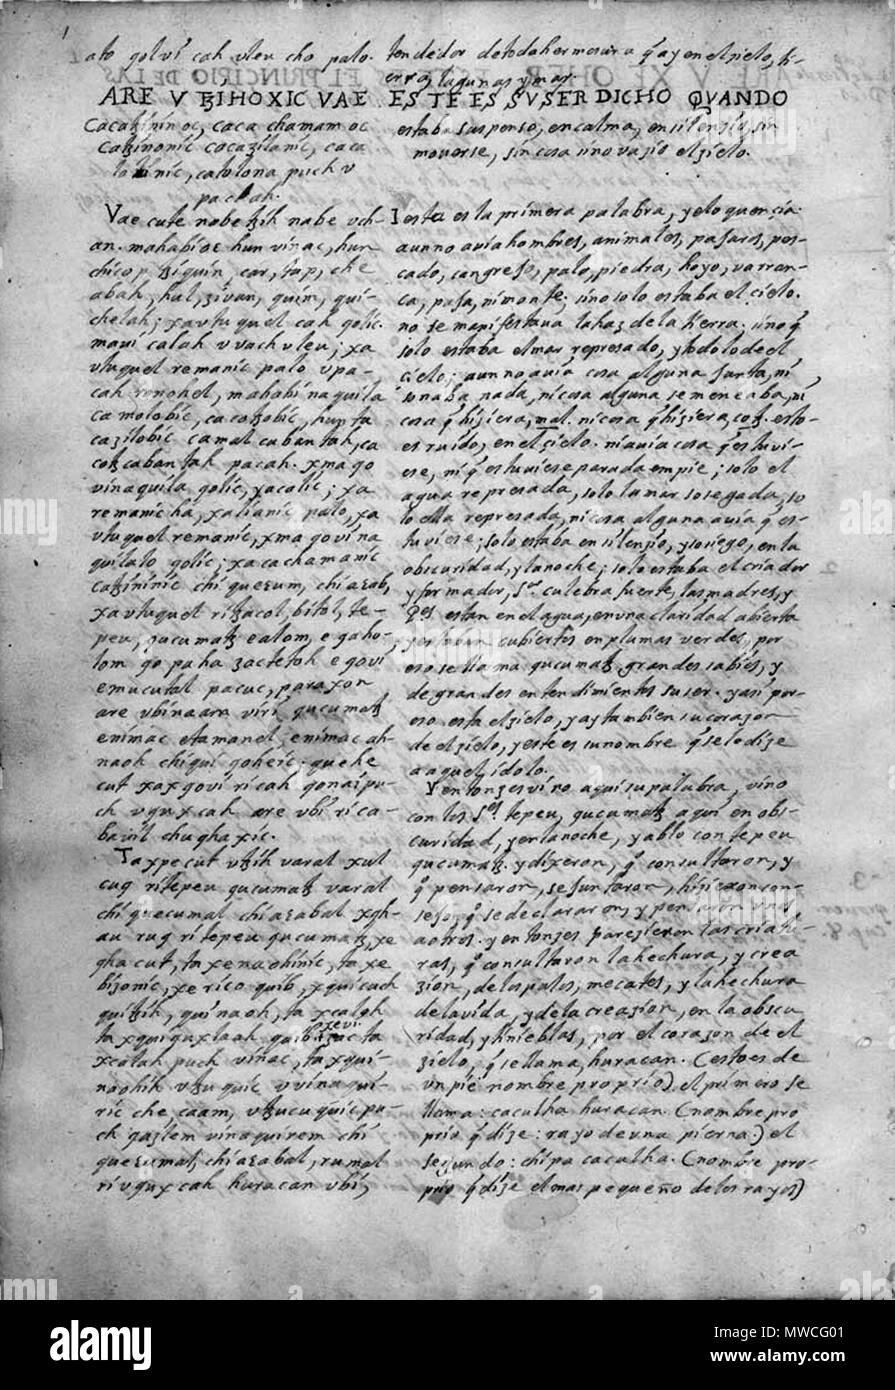 1
ato golvi cah uleu cho palo.
ARE V ꜩIHOXIC VAE
cacatzinin oc, caca chamam oc
catzinonic cacazilanic, caca
lolinic, catolona puch v
pa cah.
Vae cute nabe tzih nabe vch-
an. mahabioc hun vinac, hun
chicop, tziquin, car, tap, che
abah, hul, zivan, quim, qui-
chelah; xa vtuquel cah golic.
mavi calah v vach uleu; xa
vtuquel remanic palo v pa-
cah ronohel, mahabi naquila
ca molobic, ca cotzobic, hunta
cazilobic camal cabantah, ca
cotz cabantah pa cah. x ma go
vi naquila golic, yacalic; xa
remanic ha, xa lianic palo, xa
vtuquel remanic, x ma go vi na
quilalo golic; xa cachamanic
catzininic chi quecum, chi acab,
xa vtuquel ri tzacol, bitol, te-
peu, qucumatz e alom, e qaho-
lom go pa ha zactetoh e govi
e mucutal pa cuc, pa raxon
are vbinaam viri qucumatz
e nimac etamanel, e nimac ah-
naoh chi qui goheic. quehe
cut xax govi ri cah, go naipu-
ch v qux cah are v bi ri ca-
bavil chughaxic.
Ta xpe cut v tzih varal xul
cuq ri tepeu qucumatz varal
chi quecumal chi acabal xqh-
au ruq ri tepeu qucumatz, xe
qha cut, ta xe naohinic, ta xe
bizonic, xe rico quib, xquicuch
qui tzih, qui naoh, ta xcalah
xevi.
ta xquiquxlaah quib zac ta
xcalah puch vinac, ta xqui-
naohih v tzuquic v vinaqui-
ric che caam, v tzucuquic pu-
ch qazlem vinaquirem chi
quecumal chi acabal, rumal
ri v qux cah huracan v bi,
tendedor de toda hermosura q̃ ay en el zielo, ti-
erra, lagunas, y mar.
ESTE ES SV SER DICHO QVANDO
estaba suspenso, en calma, en silenzio, sin
moverse, sin cosa sino vazio el zielo.
Y esta es la primera palabra, y eloquenzia.
aun no avia hombres, animales, pajaros, pes-
cado, cangrejo, palo, piedra, hoyo, varran-
ca, paja, ni monte; sino solo estaba el cielo.
no se manifestava la haz de la tierra; sino q̃
solo estaba el mar represado, y todo lo de el
cielo; aun no avia cosa alguna junta, ni
sonaba nada, ni cosa alguna se meneaba, ni
cosa q̃ hiziera, mal. ni cosa q̃ hiziera, cotz. esto
es ruido, en el zielo. ni avia cosa q̃ estuvi-
ese, ni q̃ estuviese parada en pie; solo el
agua represada, solo la mar sosegada, so
lo ella represada, ni cosa alguna avia q̃ es-
tuviese; solo estaba en silenzio, y sosiego, en la
obscuridad, y la noche; solo estaba el criador
y formador, Sr. culebra fuerte, las madres, y
Pes. estan en el agua, en una claridad abierta
y estaban cubiertos en plumas verdes, por
eso se llama qucumatz, grandes sabios, y
de grandes entendimientos su ser. y asi por-
eso esta el zielo, y ay tambien su corazon
de el zielo, y este es su nombre q̃ se lo dize
a aquel ydolo.
Y entonzes vino aqui su palabra, vino
con los Ses. tepeu, qucumatz aqui en obs-
curidad, y en la noche, y ablo con tepeu
qucumatz. y dixeron, q̃ consultaron, y
q̃ pensaron, se juntaron, hizieron con-
sejo, q̃ se declararon, y pensaron unos
a otros. y entonzes parezieron las criatu-
ras, q̃ consultaron la hechura, y crea
zion, de los palos, mecates, y la hechura
de la vida, y de la creazion, en la obscu
ridad, y tinieblas, por el corazon de el
zielo, q̃ se llama, huracan. (esto es de
un pie nombre proprio.) el primero se
llama: caculha huracan. (nombre pro
prio q̃ dize: rayo de una pierna.) el
segundo: chipa caculha. (nombre pro-
prio q̃ dize el mas pequeño de los rayos)
alamy
Image ID: MWCG01
www.alamy.com